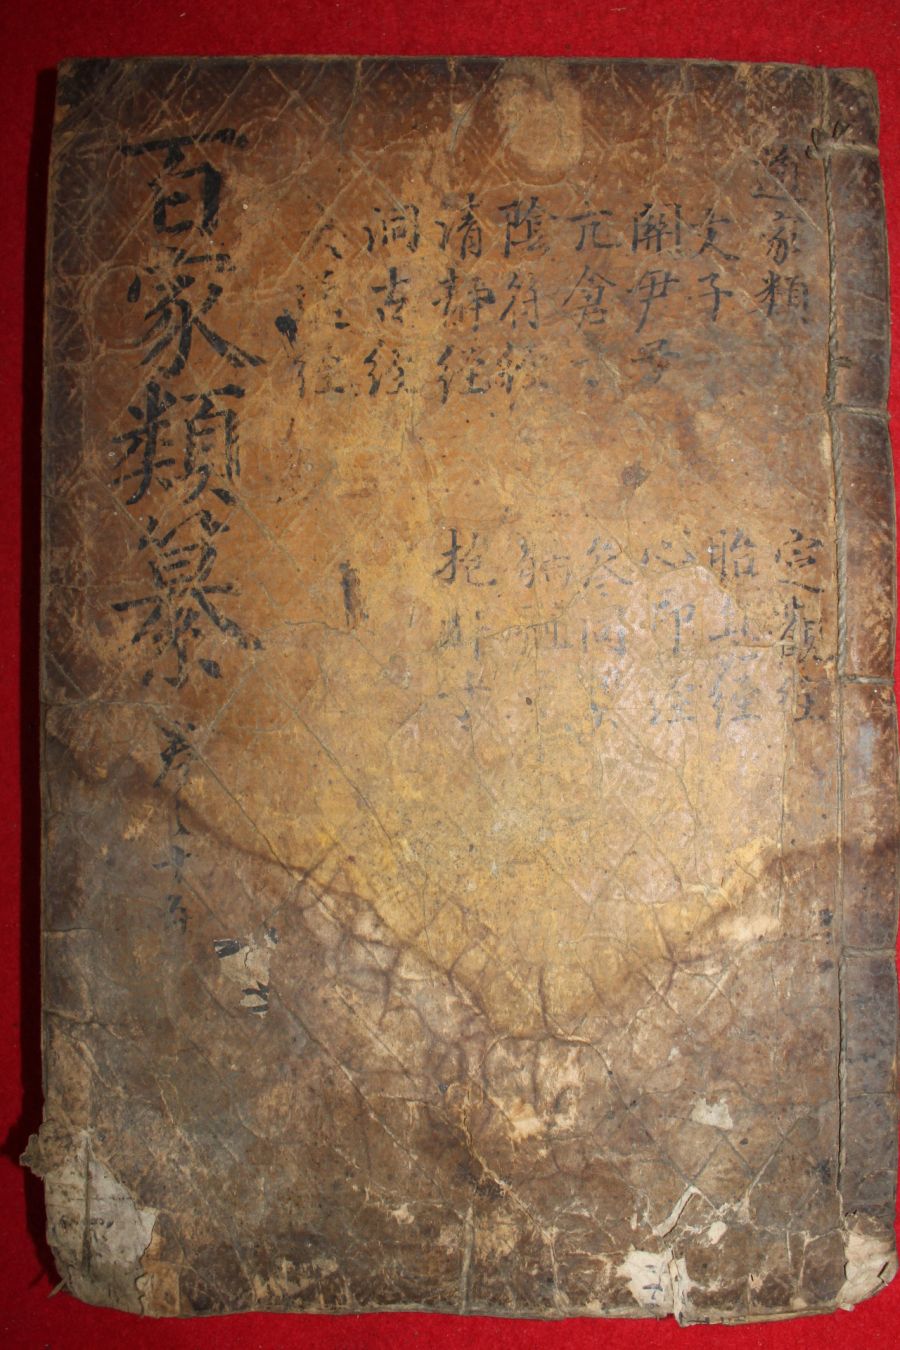 道家類
文子
關尹子
亢倉子
陰符經
清靜經
洞古經
大通經
定觀經
胎息經
心印經
參同契
抱朴子
百家類纂